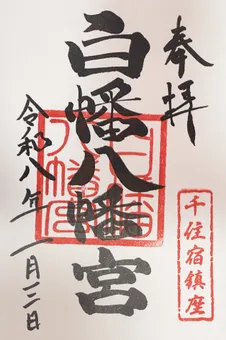 奉拝
千住宿鎮座
白幡八幡宮
令和八年一月二日